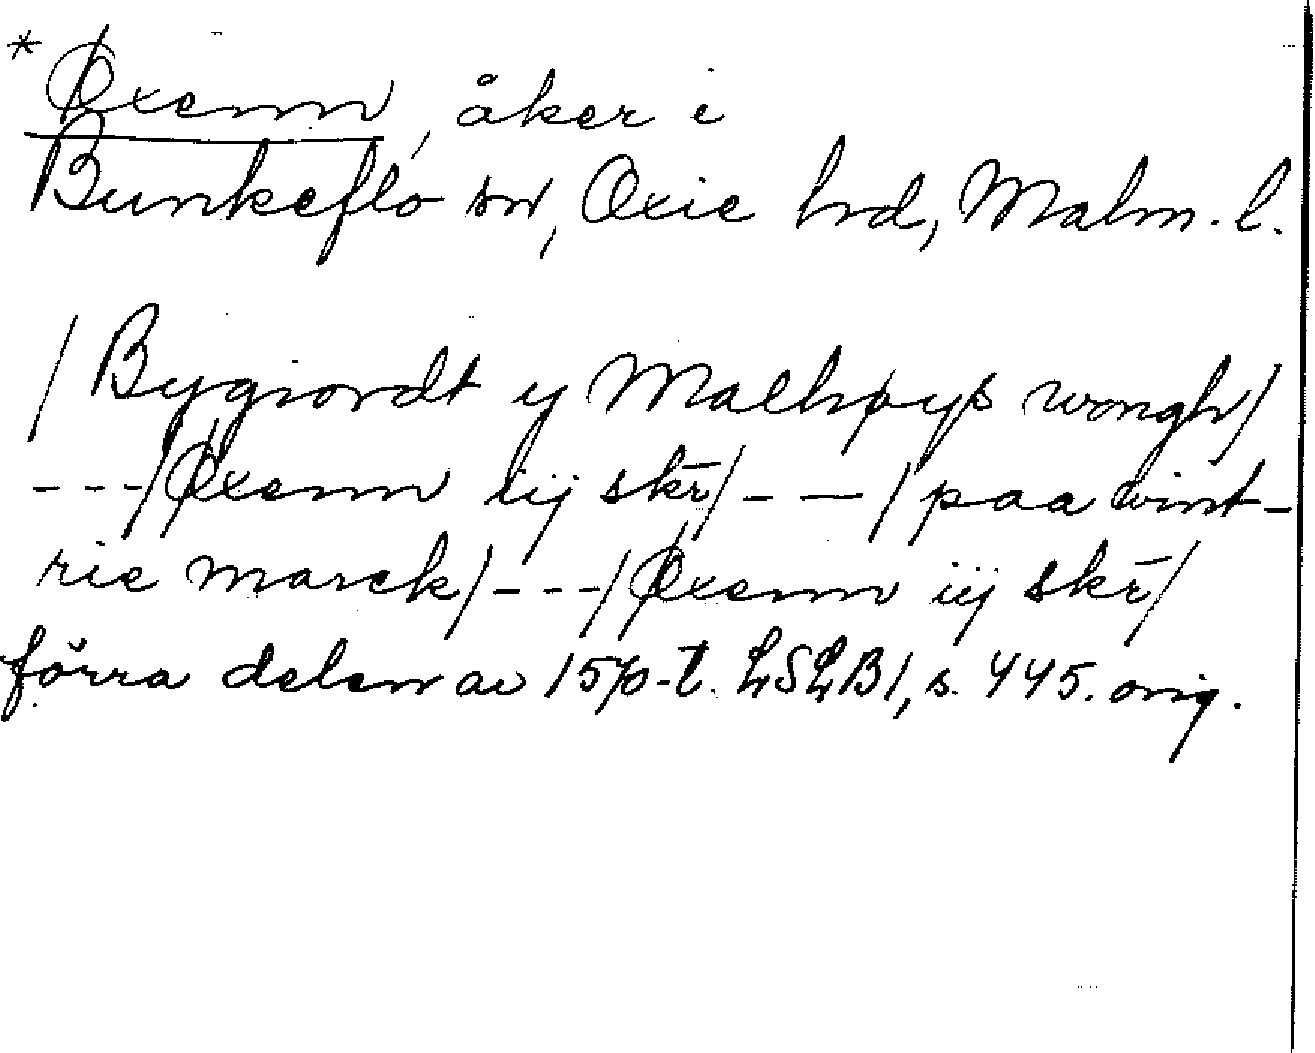 *Øxenn, åker i
Bunkeflo sn, Oxie hrd, Malm. l.
/Bygiordt y Malhøyß wongh/
---/Øxenn iij skr̄/---/paa vint-
rie marck/---/Øxenn iij skr̄/
förra delen av 1570-t. LSLB1, s. 445. orig.